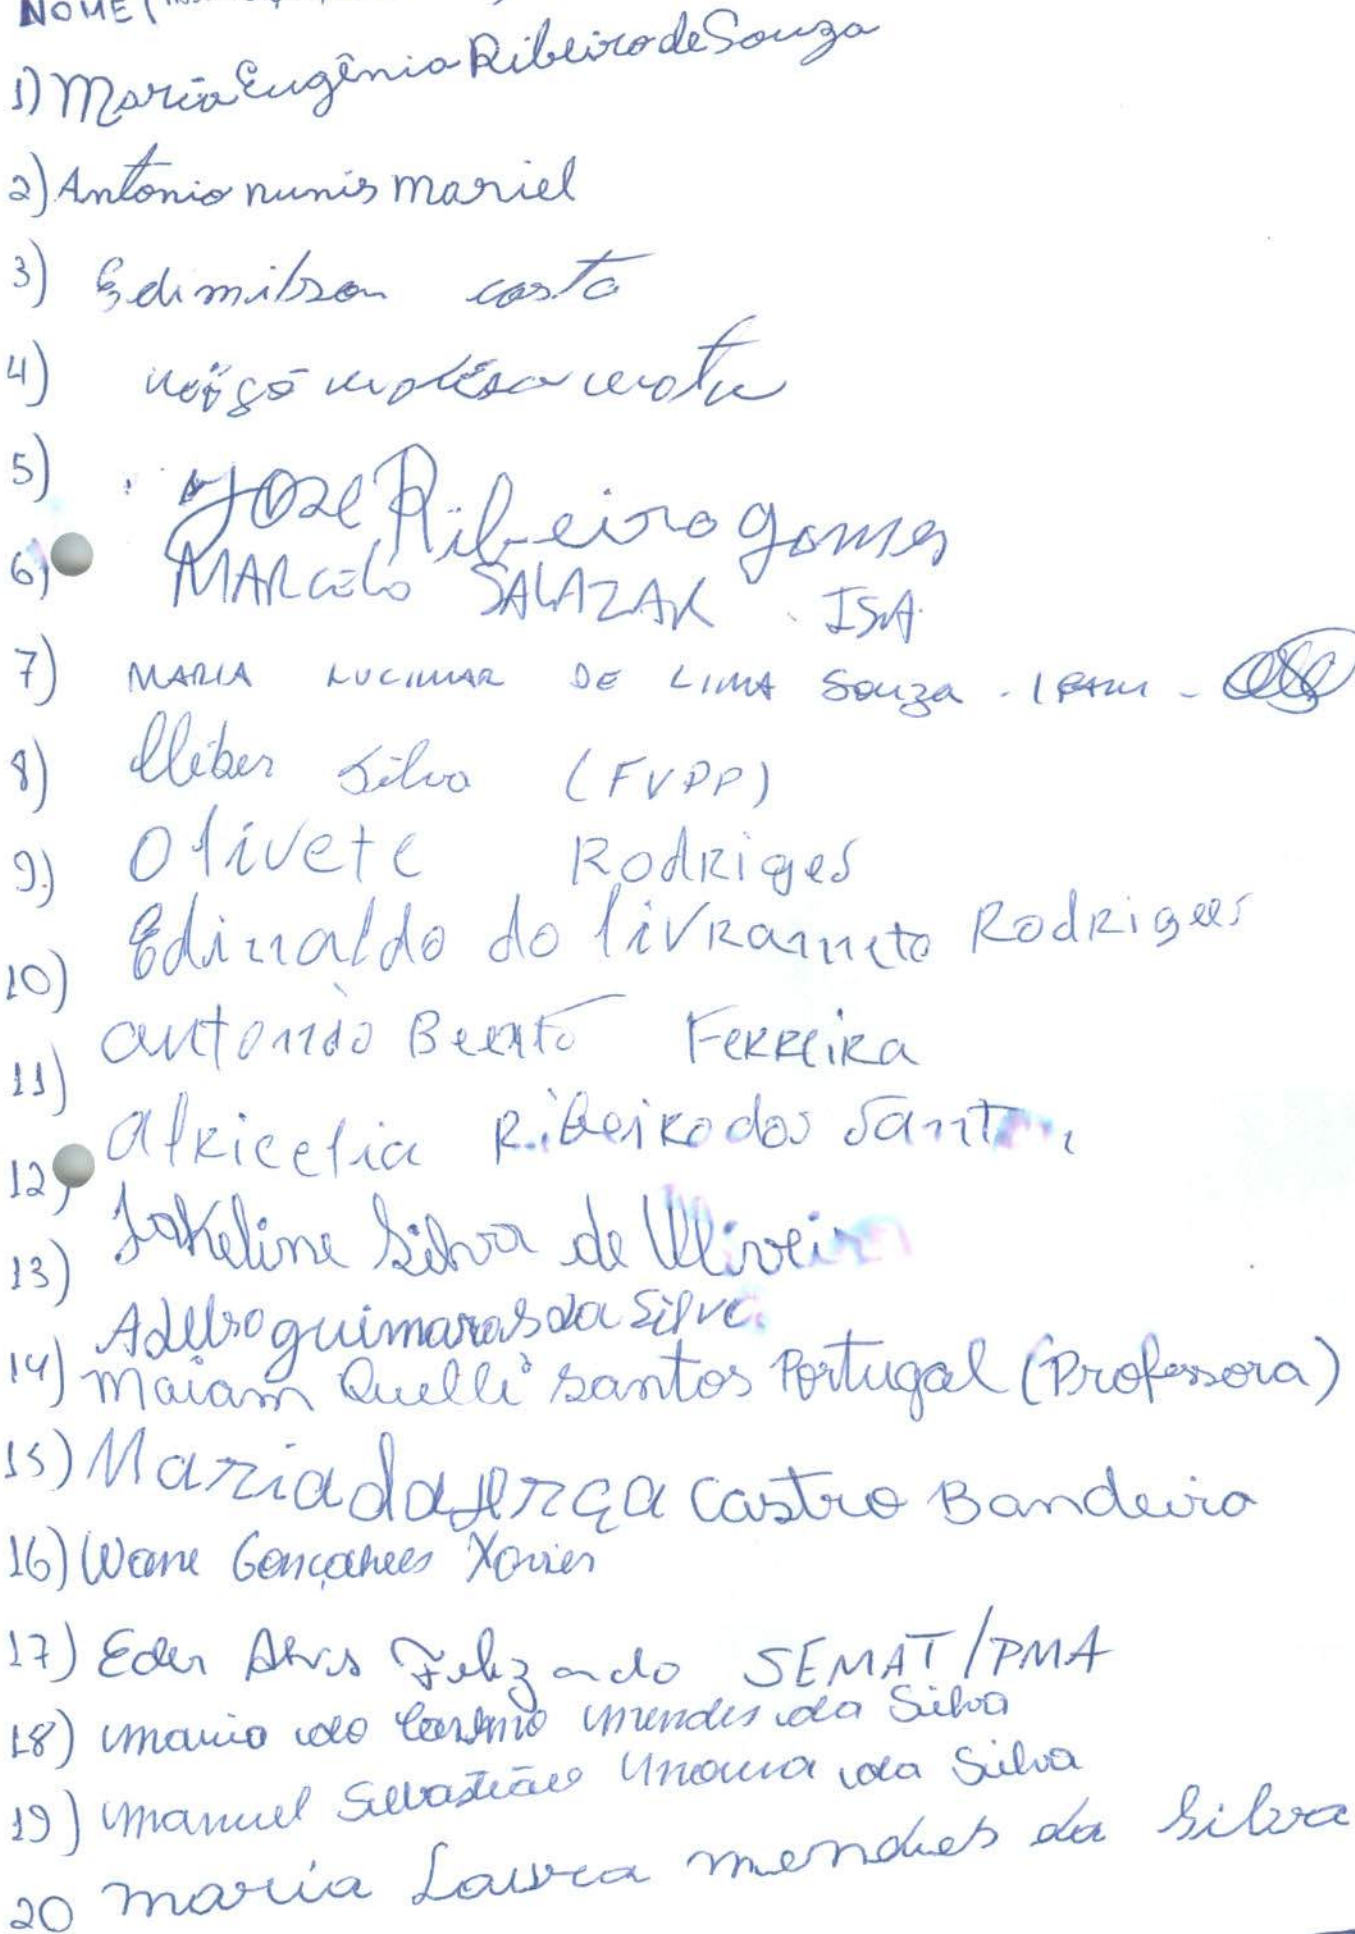 NOME (
1) Maria Eugênia Ribeiro de Souza
2) Antonio nunis mariel
3) Edimilson costa
4)
5) Jose Ribeiro gomes
6) MARCELO SALAZAR . ISA
7) MARIA LUCIMAR DE LIMA Souza - IPAM -
8) Cleber Silva (FVPP)
9.) Olivete RodRiges
10) Edinaldo do livRamneto RodRigees
11) antonio Beento FeRReiRa
12) alRicelia Ribeiro dos Santos
13) Jakeline Silva de Oliveira
Adelso guimaras da Silva
14) maiam Quelli santos Portugal (Professora)
15) Maria da graça castro Bandeira
16) Wane Gonçalves Xavier
17) Eder Alves Felizardo SEMAT/PMA
18) maria do Carmo mendes da Silva
19) manuel Sebastião da Silva
20 maria Laura mendes da Silva